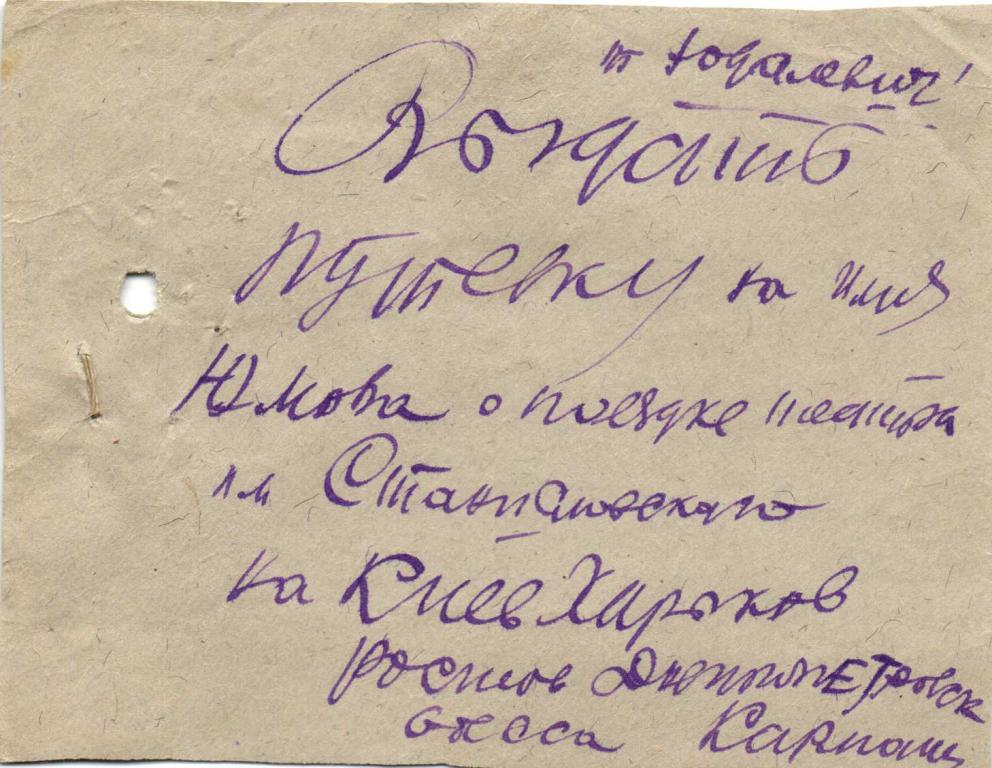 т Юдалевич
Выдать
путевку на имя
Юмова о поездке театра
им Станиславского
на Киев Харьков
Ростов Днепропетровск
Одесса